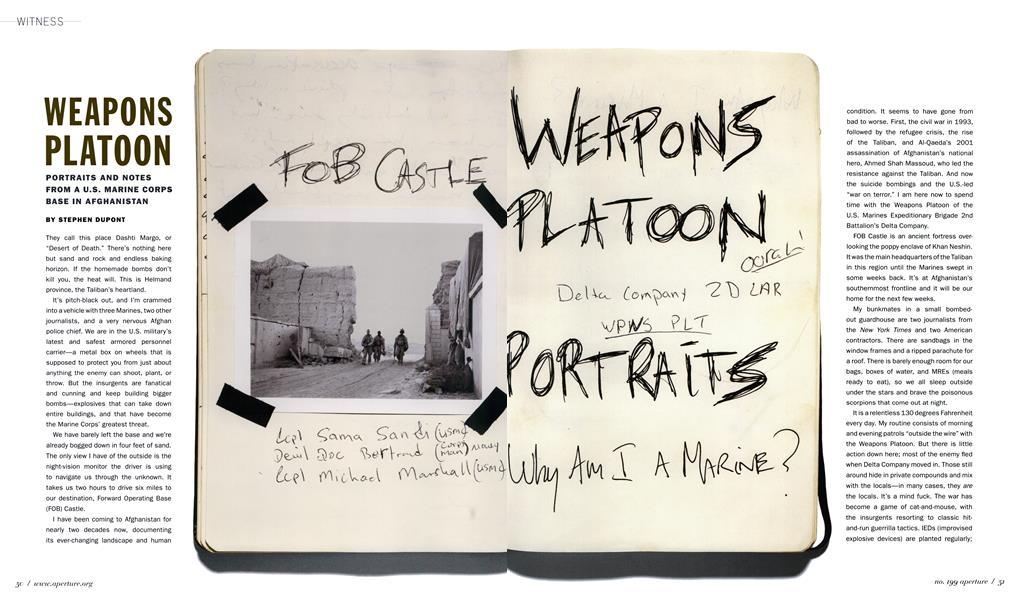 WITNESS
WEAPONS
PLATOON
PORTRAITS AND NOTES
FROM A U.S. MARINE CORPS
BASE IN AFGHANISTAN
BY STEPHEN DUPONT
They call this place Dashti Margo, or
"Desert of Death." There's nothing here
but sand and rock and endless baking
horizon. If the homemade bombs don't
kill you, the heat will. This is Helmand
province, the Taliban's heartland.
It's pitch-black out, and I'm crammed
into a vehicle with three Marines, two other
journalists, and a very nervous Afghan
police chief. We are in the U.S. military's
latest and safest armored personnel
carrier—a metal box on wheels that is
supposed to protect you from just about
anything the enemy can shoot, plant, or
throw. But the insurgents are fanatical
and cunning and keep building bigger
bombs—explosives that can take down
entire buildings, and that have become
the Marine Corps' greatest threat.
We have barely left the base and we're
already bogged down in four feet of sand.
The only view I have of the outside is the
night-vision monitor the driver is using
to navigate us through the unknown. It
takes us two hours to drive six miles to
our destination, Forward Operating Base
(FOB) Castle.
I have been coming to Afghanistan for
nearly two decades now, documenting
its ever-changing landscape and human
FOB CASTLE
Lcpl Sama Sandi (USMC)
Devil Doc Bertrand (Corps man) Navy
Lcpl Michael Marshall (USMC)
WEAPONS
PLATOON
oorah
Delta Company 2D LAR
WPNS PLT
PORTRAITS
Why Am I A MARINE?
condition. It seems to have gone from
bad to worse. First, the civil war in 1993,
followed by the refugee crisis, the rise
of the Taliban, and Al-Qaeda's 2001
assassination of Afghanistan's national
hero, Ahmed Shah Massoud, who led the
resistance against the Taliban. And now
the suicide bombings and the U.S.-led
"war on terror." I am here now to spend
time with the Weapons Platoon of the
U.S. Marines Expeditionary Brigade 2nd
Battalion's Delta Company.
FOB Castle is an ancient fortress over-
looking the poppy enclave of Khan Neshin.
It was the main headquarters of the Taliban
in this region until the Marines swept in
some weeks back. It's at Afghanistan's
southernmost frontline and it will be our
home for the next few weeks.
My bunkmates in a small bombed-
out guardhouse are two journalists from
the New York Times and two American
contractors. There are sandbags in the
window frames and a ripped parachute for
a roof. There is barely enough room for our
bags, boxes of water, and MREs (meals
ready to eat), so we all sleep outside
under the stars and brave the poisonous
scorpions that come out at night.
It is a relentless 130 degrees Fahrenheit
every day. My routine consists of morning
and evening patrols "outside the wire" with
the Weapons Platoon. But there is little
action down here; most of the enemy fled
when Delta Company moved in. Those still
around hide in private compounds and mix
with the locals—in many cases, they are
the locals. It's a mind fuck. The war has
become a game of cat-and-mouse, with
the insurgents resorting to classic hit-
and-run guerrilla tactics. IEDs (improvised
explosive devices) are planted regularly;
50 / www.aperture.org
no. 199 aperture / 51